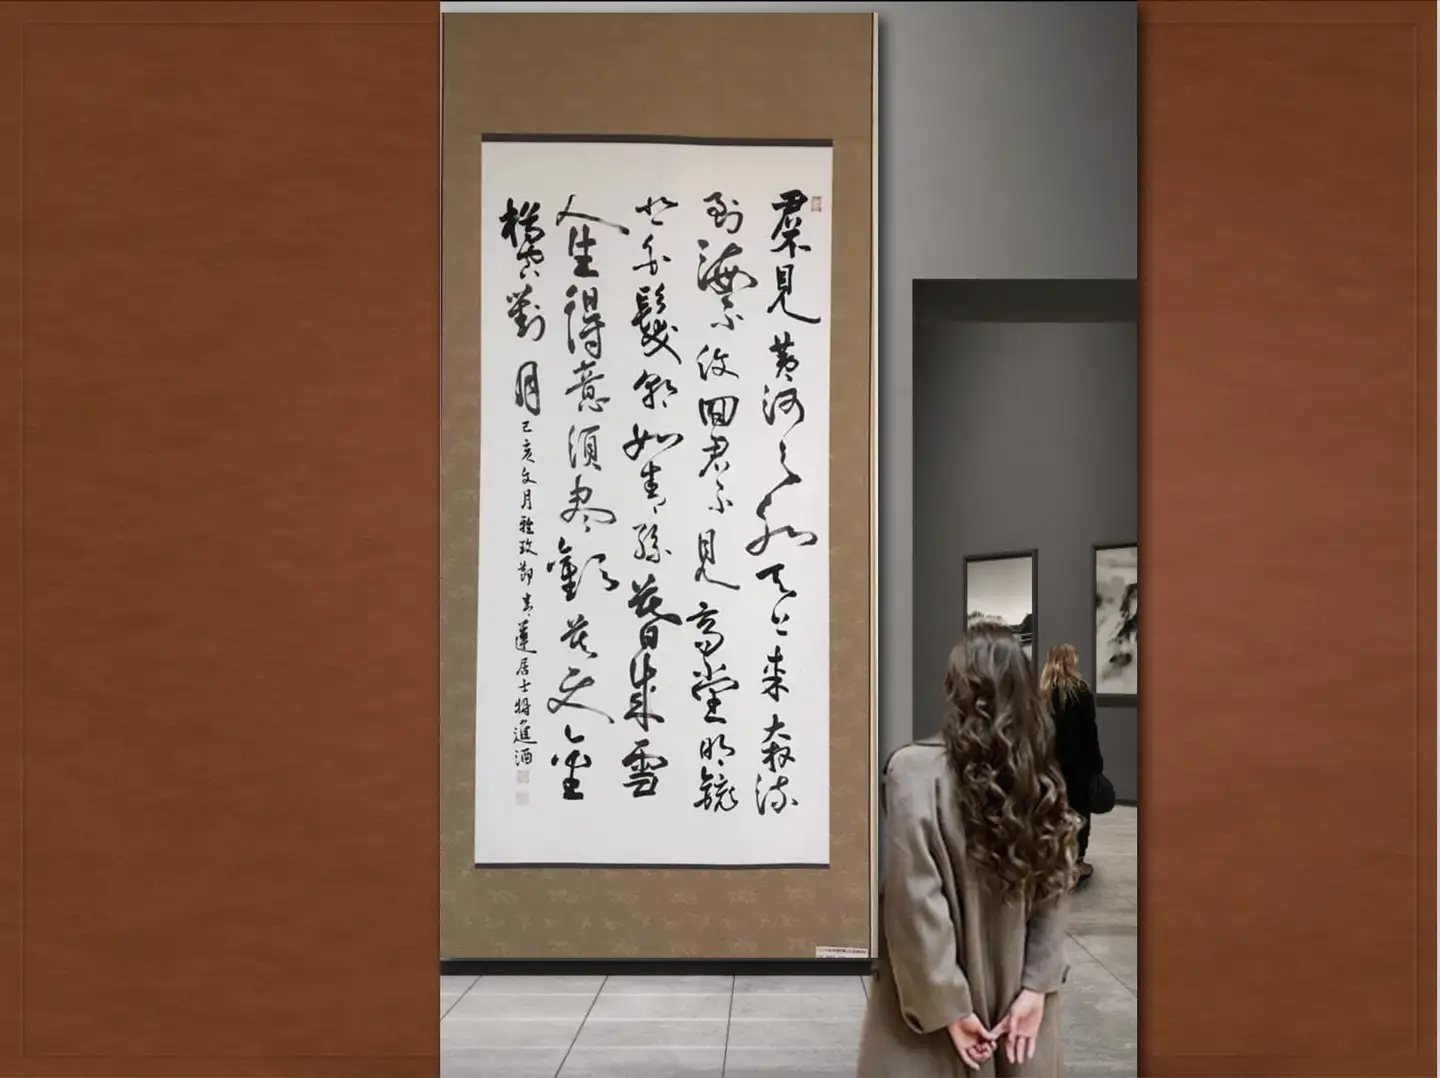 君不見黄河之水天上来奔流
到海不復回君不見高堂明鏡
悲白髮朝如青絲暮成雪
人生得意須盡歡莫使金
樽空對月
己亥文月雅玫節青蓮居士将進酒